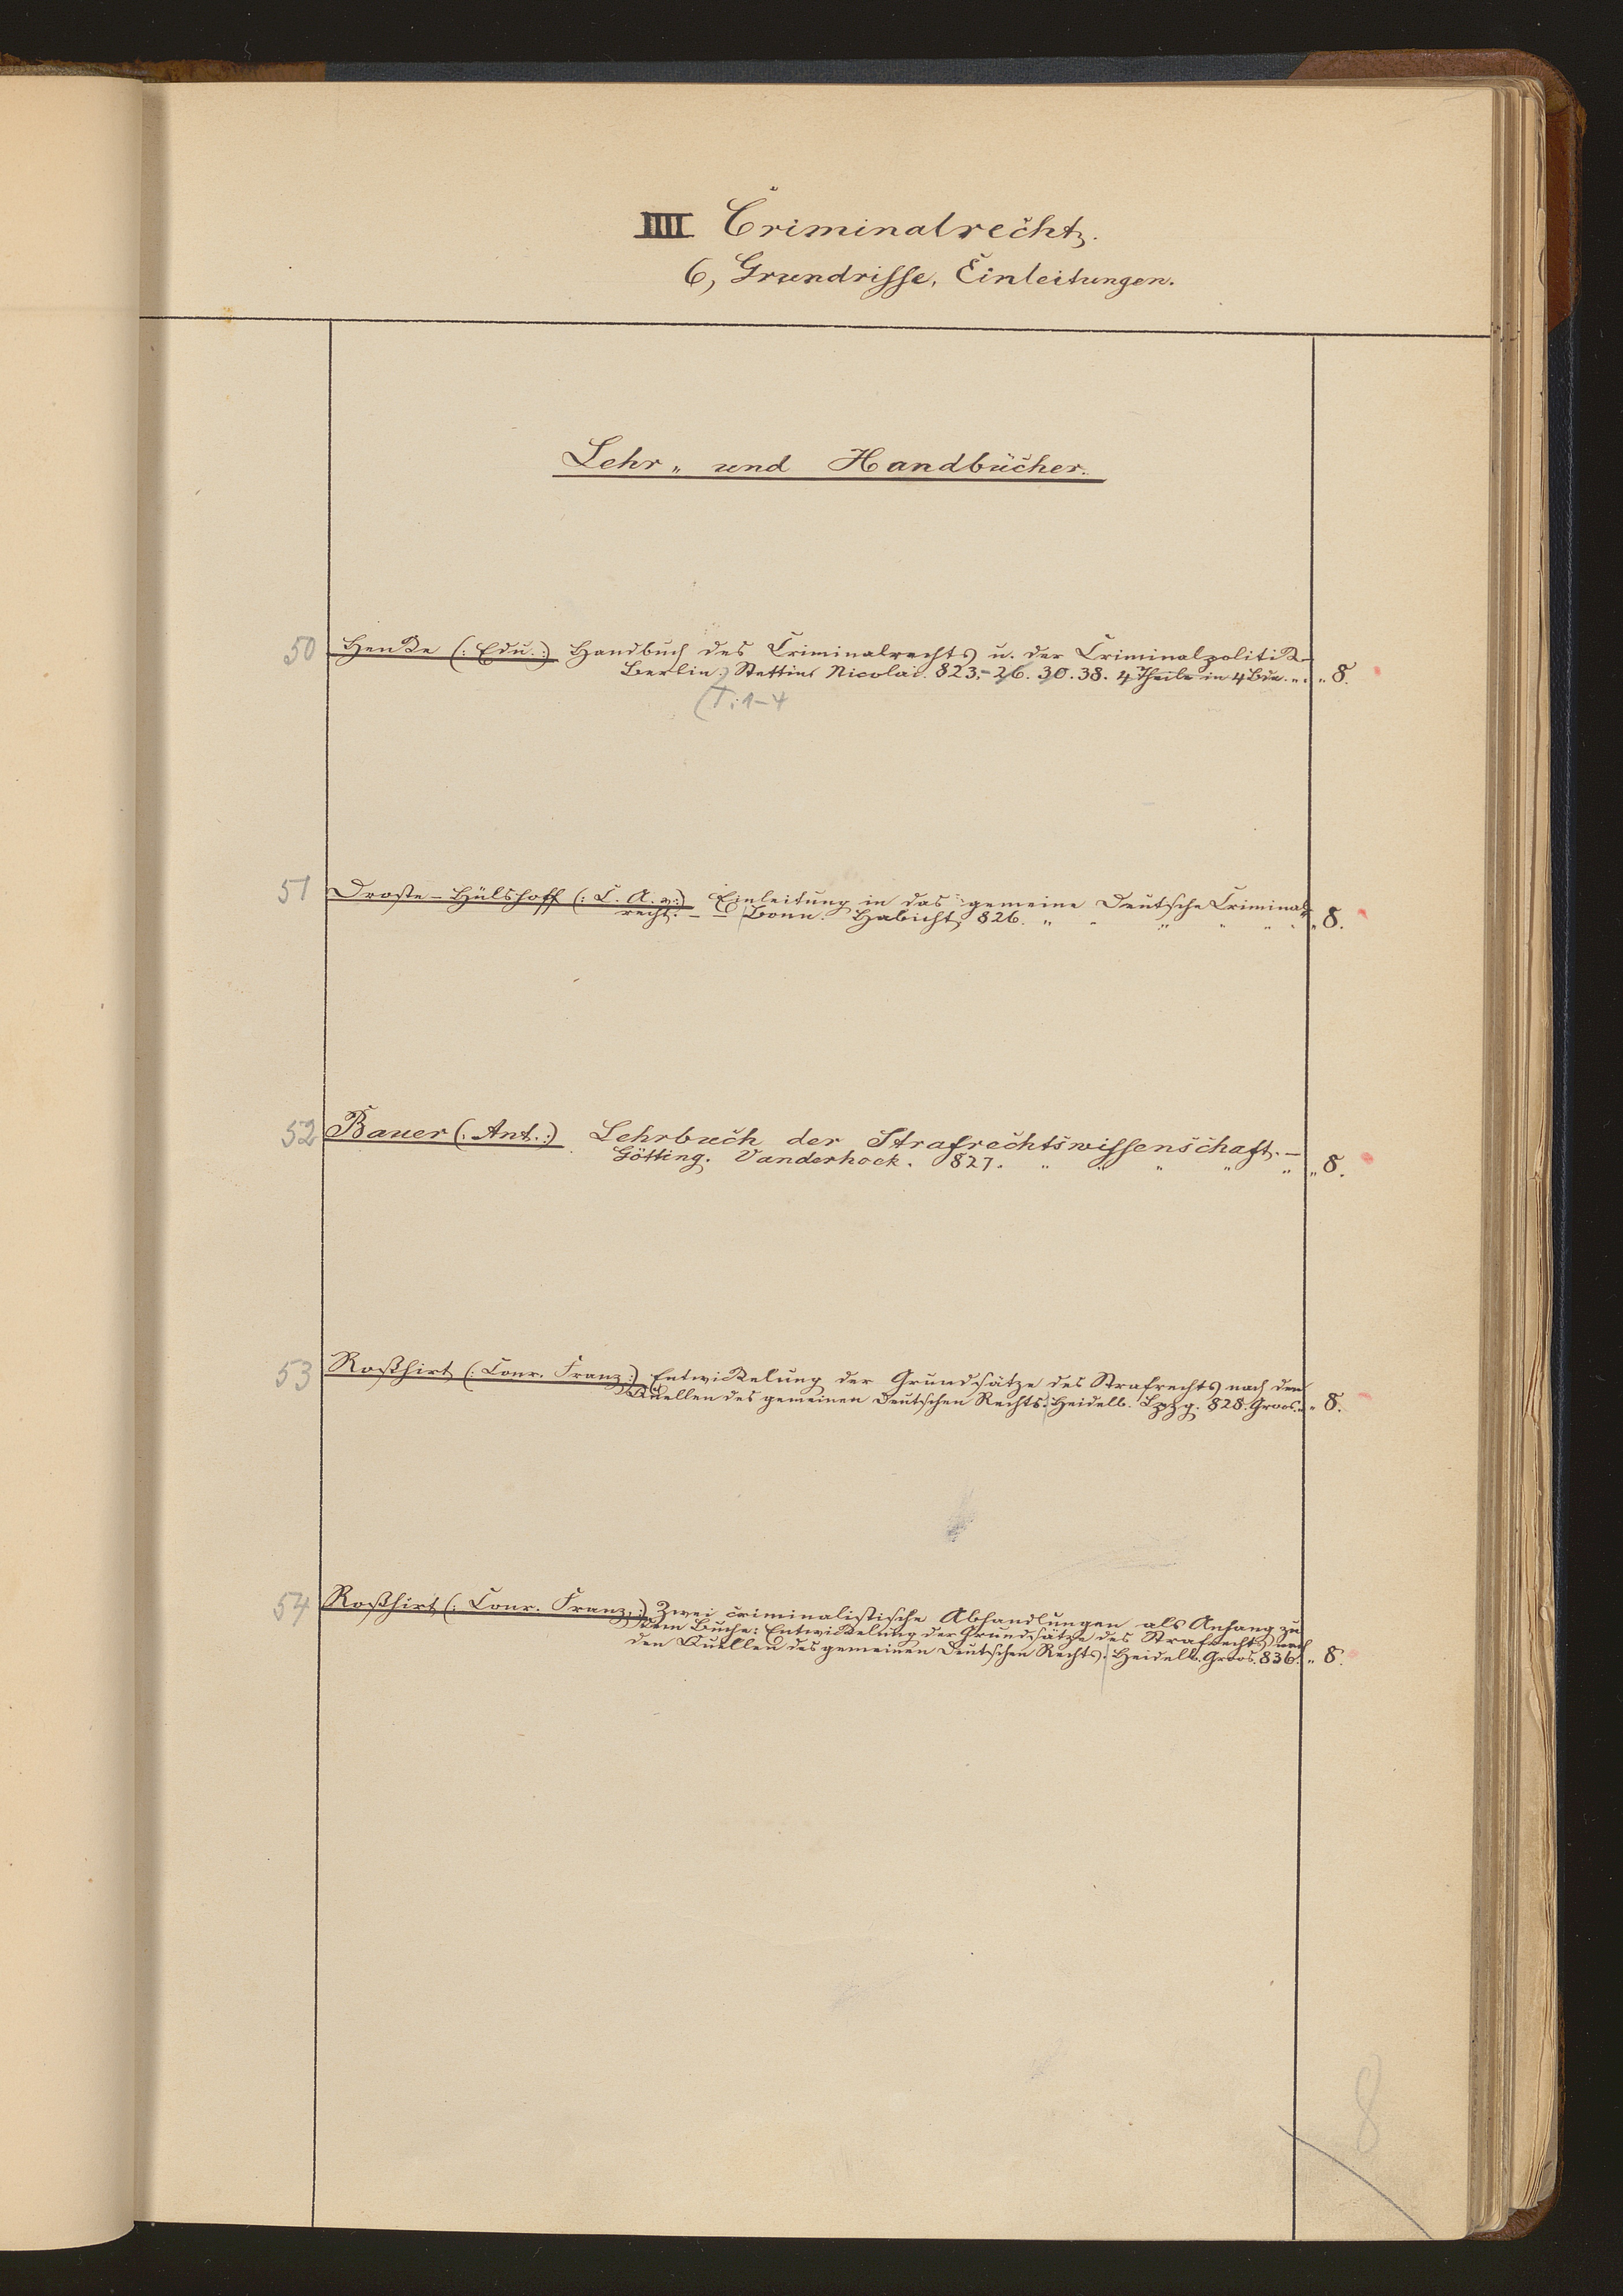 IIII Criminalrecht.
6, Grundrisse, Einleitungen.
Lehr- und Handbücher.
50 Henke (: Edu. :) Handbuch des Criminalrechts u. der Criminalpolitik
Berlin. Stettin Nicolai. 823.-26. 30. 38. 4 Theile in 4 Bde. „ 8.
(T. 1-4
51 Droste-Hülshoff (: C. A. v. :) Einleitung in das gemeine Deutsche Criminal-
recht. – – Bonn. Habicht, 826. „ „ „ „ „ „ 8.
52 Bauer (: Ant. :) Lehrbuch der Strafrechtswissenschaft. –
Götting. Vanderhoek. 827. „ „ „ „ „ „ 8.
53 Roßhirt (: Conr. Franz :) Entwickelung der Grundsätze des Strafrechts nach den
Quellen des gemeinen Deutschen Rechts. Heidelb. Lpzg. 828. Groos. „ 8.
54 Roßhirt (: Conr. Franz. :) Zwei criminalistische Abhandlungen als Anhang zu
dem Buche: Entwickelung der Grundsätze des Strafrechts nach
den Quellen des gemeinen Deutschen Rechts. Heidelb. Groos. 836. „ 8.
8